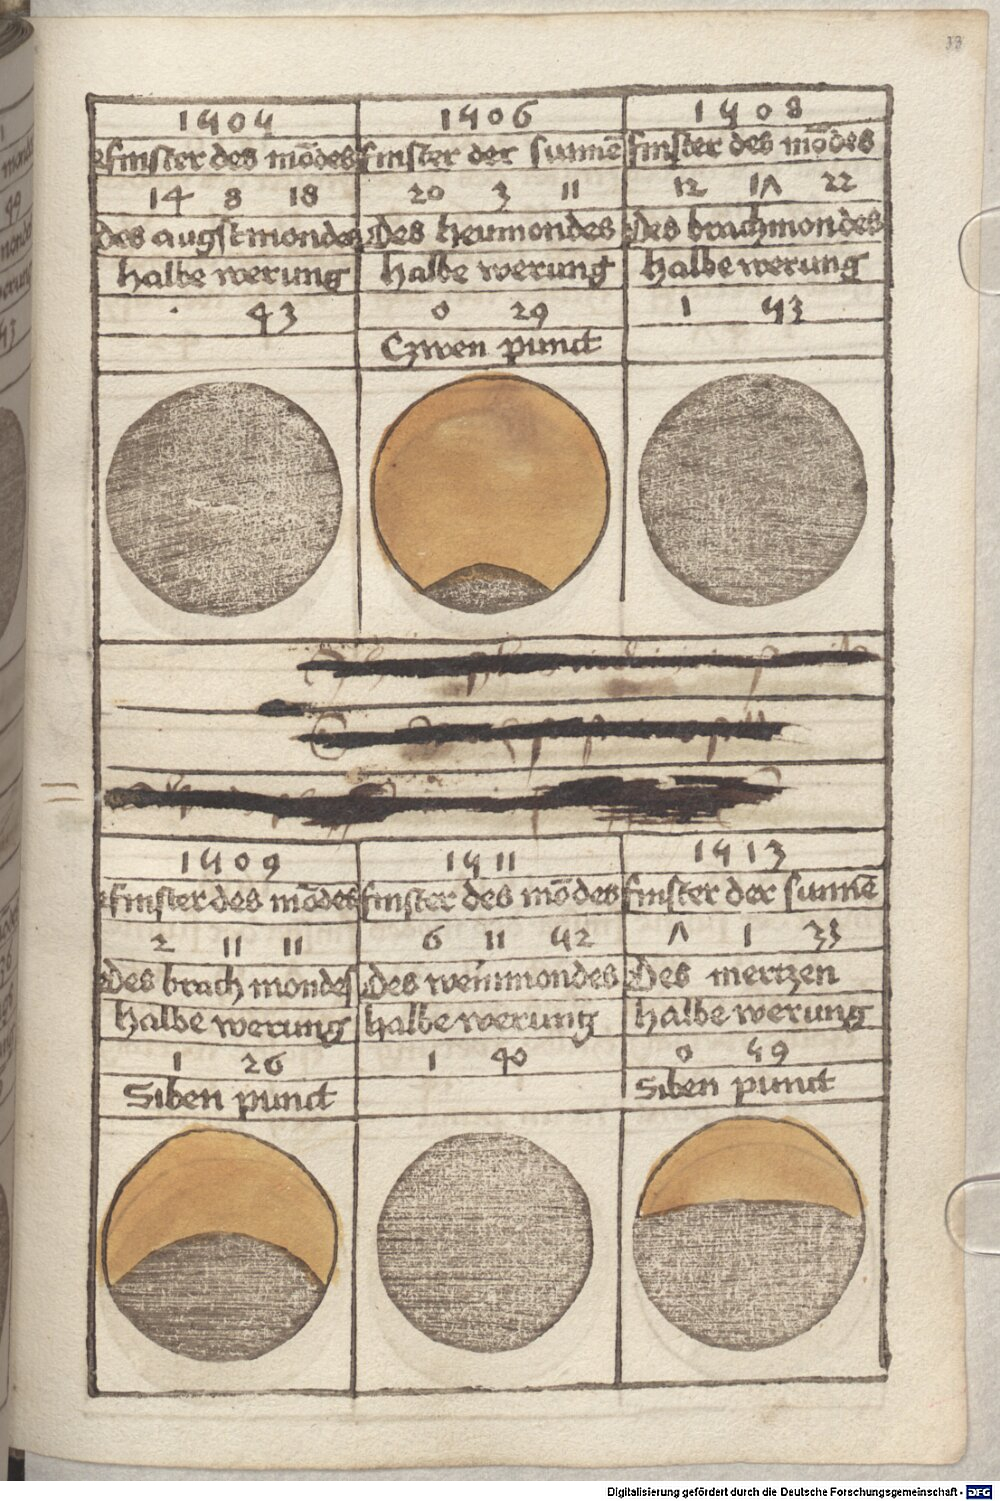 1505 1506 1508
finster des mōdes finster der sunnē finster des mōdes
14 8 18 20 3 11 12 17 22
des augstmondes Des heumondes Des brachmondes
halbe werung halbe werung halbe werung
43 0 29 1 53
Czwen punct
1509 1511 1513
finster des mōdes finster des mōdes finster der sunnē
2 11 11 6 11 52 7 1 33
Des brach mondes Des weinmondes Des mertzen
halbe werung halbe werung halbe werung
1 26 1 40 0 59
Siben punct Siben punct
Digitalisierung gefördert durch die Deutsche Forschungsgemeinschaft - DFG